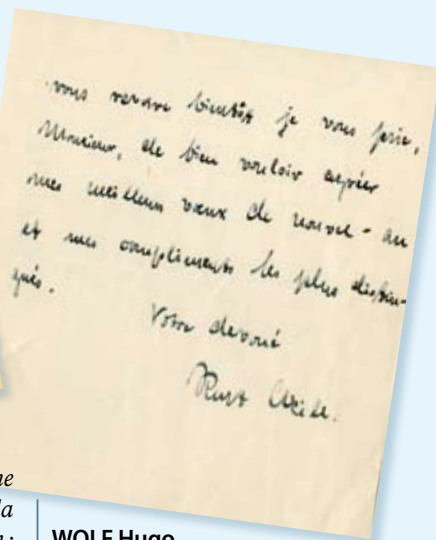 vous revoir bientôt je vous prie,
Monsieur, de bien vouloir agréer
mes meilleurs vœux de nouvel-an
et mes compliments les plus distin-
gués.
Votre dévoué
Kurt
ne
la
WOLF Hugo